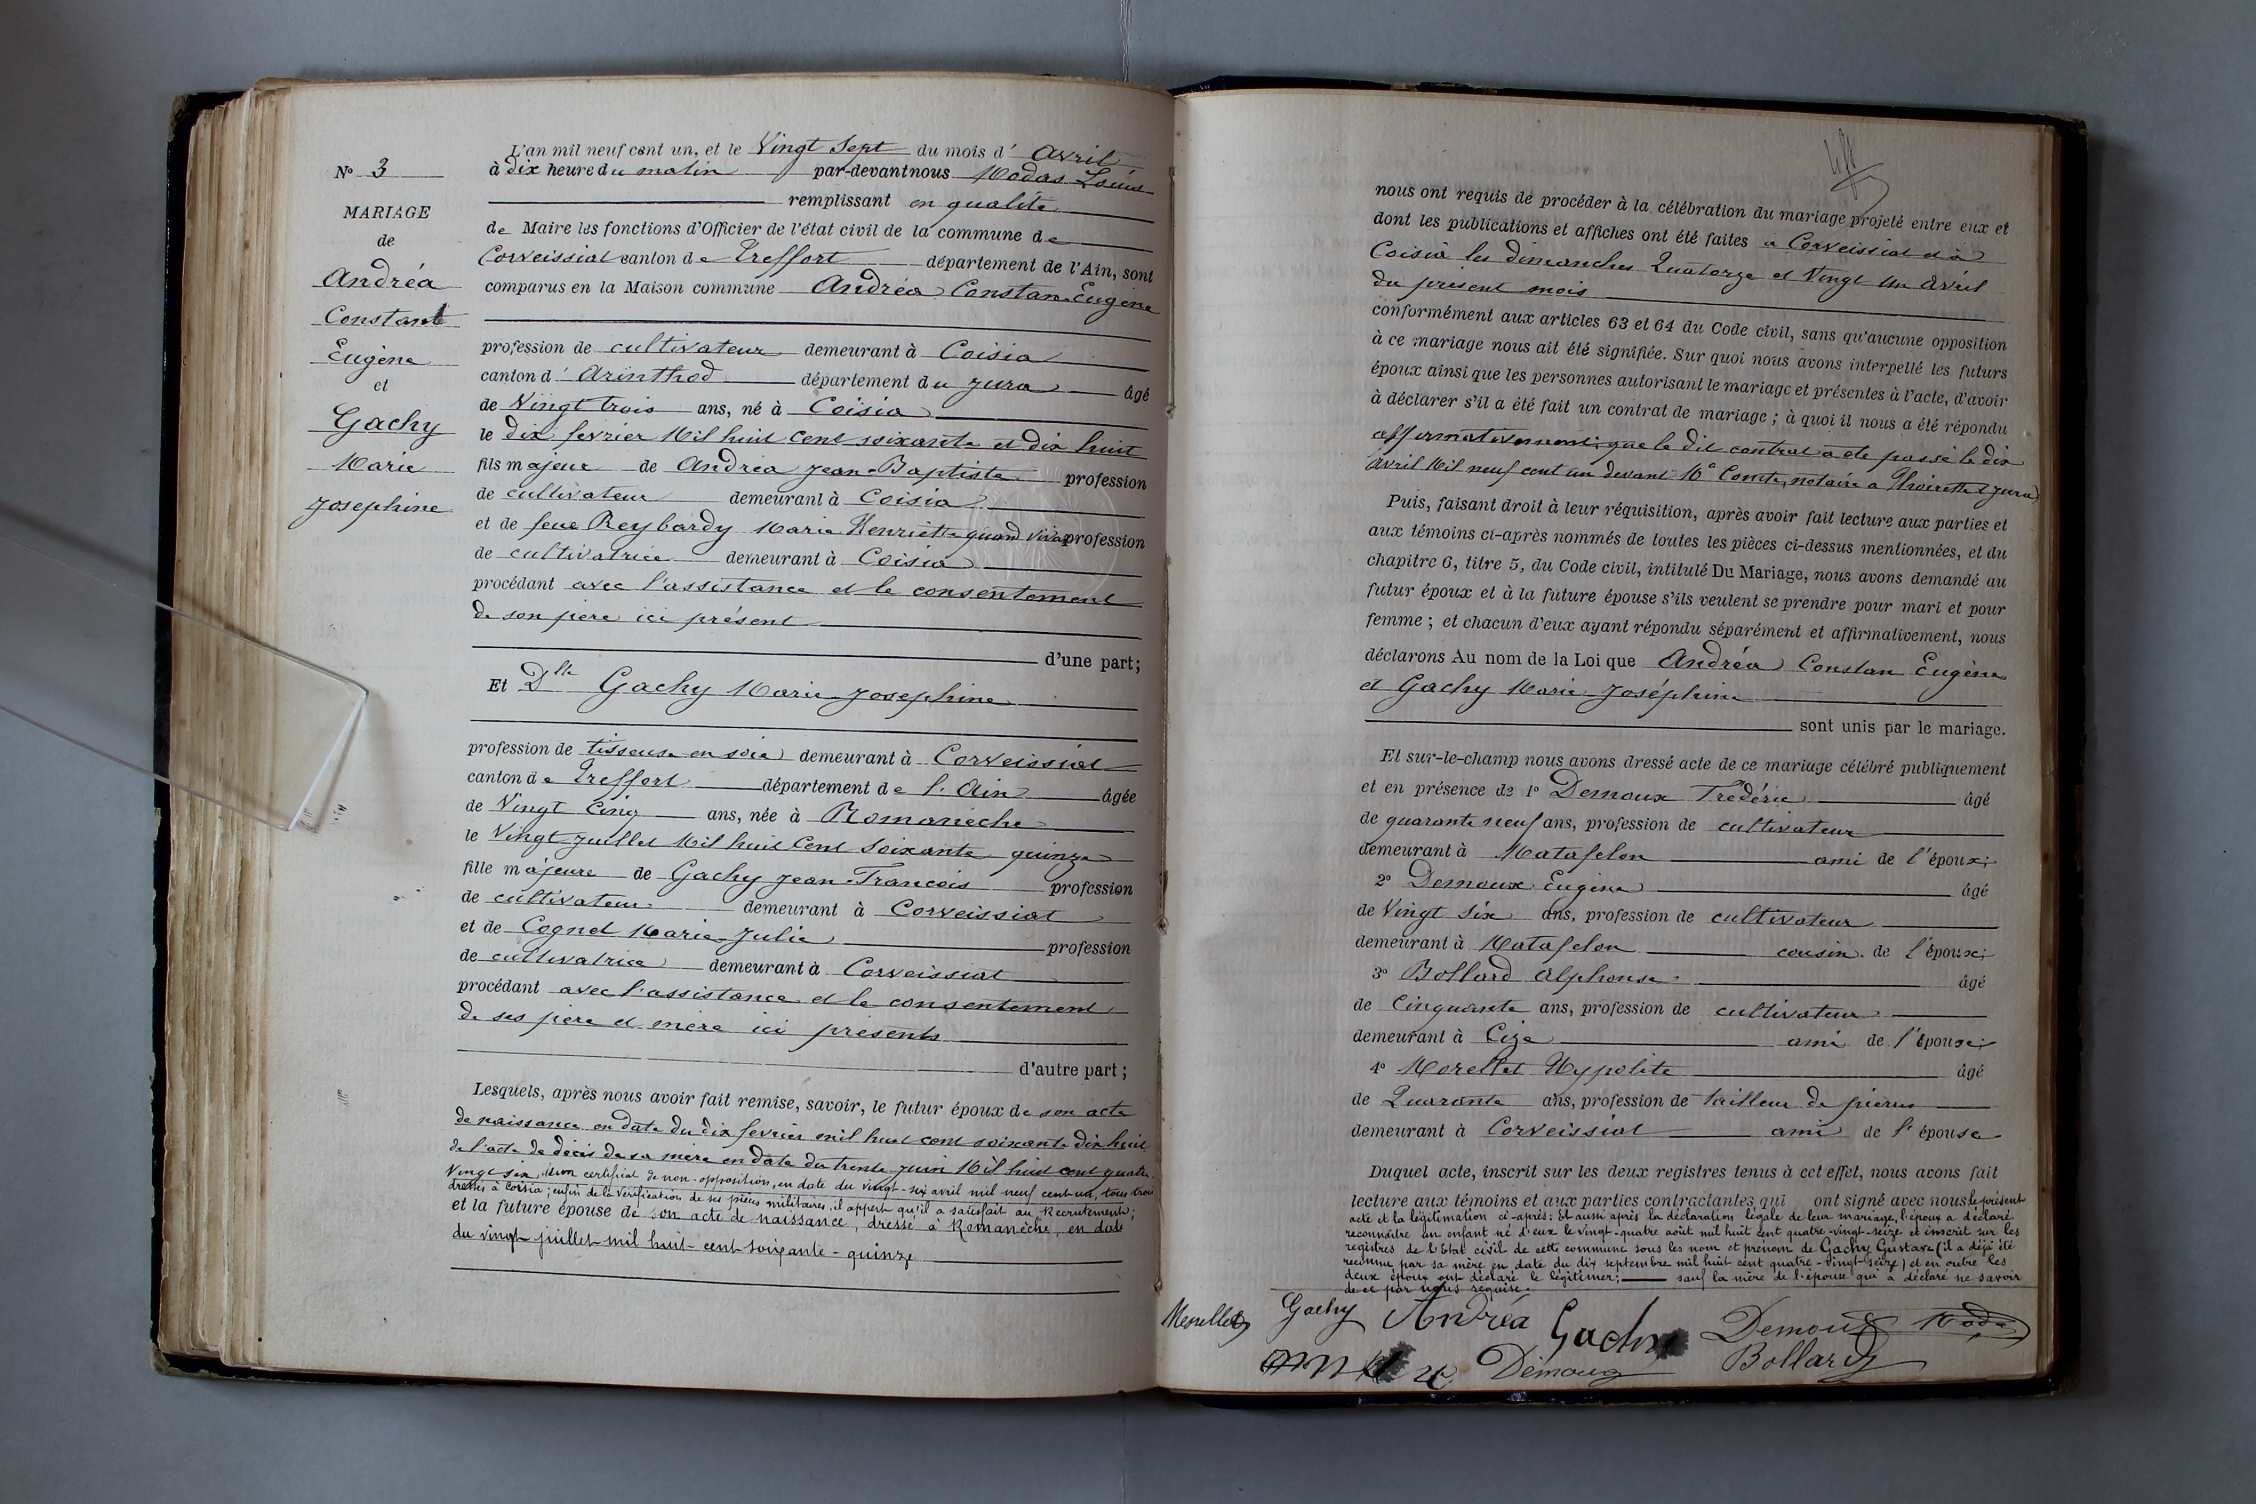 N° 3
MARIAGE
de
Andréa
Constant
Eugène
et
Gachy
Marie
Josephine
L'an mil neuf cent un, et le Vingt Sept du mois d' Avril
à dix heure du matin par-devant nous Modas Louis
remplissant en qualité
de Maire les fonctions d'Officier de l'état civil de la commune de
Corveissiat canton de Treffort département de l'Ain, sont
comparus en la Maison commune Andréa Constan Eugène
profession de cultivateur demeurant à Coisia
canton d' Arinthod département du Jura âgé
de Vingt trois ans, né à Coisia
le dix fevrier Mil huit cent soixante et dix huit
fils majeur de Andréa Jean-Baptiste profession
de cultivateur demeurant à Coisia
et de feue Reybardy Marie Henriette quand vivait profession
de cultivatrice demeurant à Coisia
procédant avec l'assistance et le consentement
de son père ici présent
d'une part;
Et Dlle Gachy Marie-Josephine
profession de tisseuse en soie demeurant à Corveissiat
canton de Treffort département de l'Ain âgée
de Vingt Cinq ans, née à Romanèche
le Vingt Juillet Mil huit Cent Soixante quinze
fille majeure de Gachy Jean-Francois profession
de cultivateur demeurant à Corveissiat
et de Cognet Marie-Julie profession
de cultivatrice demeurant à Corveissiat
procédant avec l'assistance et le consentement
de ses père et mère ici présents
d'autre part;
Lesquels, après nous avoir fait remise, savoir, le futur époux de son acte
de naissance en date du dix fevrier mil huit cent soixante dix huit
de l'acte de décès de sa mère en date du trente juin Mil huit cent quatre
Vingt six, d'un certificat de non-opposition, en date du vingt-six avril mil neuf cent-un, tous trois
dressés à Coisia; enfin de la vérification de ses pièces militaires, il appert qu'il a satisfait au Recrutement;
et la future épouse de son acte de naissance, dressé à Romanèche, en date
du vingt juillet mil huit-cent-soixante-quinze
nous ont requis de procéder à la célébration du mariage projeté entre eux et
dont les publications et affiches ont été faites à Corveissiat et à
Coisia les dimanches Quatorze et Vingt Un Avril
du présent mois
conformément aux articles 63 et 64 du Code civil, sans qu'aucune opposition
à ce mariage nous ait été signifiée. Sur quoi nous avons interpellé les futurs
époux ainsi que les personnes autorisant le mariage et présentes à l'acte, d'avoir
à déclarer s'il a été fait un contrat de mariage; à quoi il nous a été répondu
affirmativement; que le dit contrat a été passé le dix
Avril Mil neuf cent un devant Me Comte, notaire à Thoirette (Jura)
Puis, faisant droit à leur réquisition, après avoir fait lecture aux parties et
aux témoins ci-après nommés de toutes les pièces ci-dessus mentionnées, et du
chapitre 6, titre 5, du Code civil, intitulé Du Mariage, nous avons demandé au
futur époux et à la future épouse s'ils veulent se prendre pour mari et pour
femme; et chacun d'eux ayant répondu séparément et affirmativement, nous
déclarons Au nom de la Loi que Andréa Constan Eugène
et Gachy Marie-Joséphine
sont unis par le mariage.
Et sur-le-champ nous avons dressé acte de ce mariage célébré publiquement
et en présence de 1° Demoux Frédéric âgé
de quarante neuf ans, profession de cultivateur
demeurant à Matafelon ami de l'époux;
2° Demoux Eugène âgé
de Vingt Six ans, profession de cultivateur
demeurant à Matafelon cousin de l'époux;
3° Bollard Alphonse âgé
de Cinquante ans, profession de cultivateur
demeurant à Cize ami de l'épouse;
4° Morellet Hypolite âgé
de Quarante ans, profession de tailleur de pierres
demeurant à Corveissiat ami de l'épouse
Duquel acte, inscrit sur les deux registres tenus à cet effet, nous avons fait
lecture aux témoins et aux parties contractantes, qui ont signé avec nous le présent
acte et la légitimation ci-après: Et aussi après la déclaration légale de leur mariage, l'époux a déclaré
reconnaître un enfant né d'eux le vingt-quatre août mil huit cent quatre-vingt-seize et inscrit sur les
registres de l'Etat civil de cette commune sous les nom et prénom de Gachy Gustave (il a déjà été
reconnu par sa mère en date du dix septembre mil huit cent quatre-vingt-seize) et en outre les
deux époux ont déclaré le légitimer; sauf la mère de l'épouse qui a déclaré ne savoir
de ce par nous requise.
Morellet Gachy Andréa Gachy Demoux Moda
Demoux Bollard